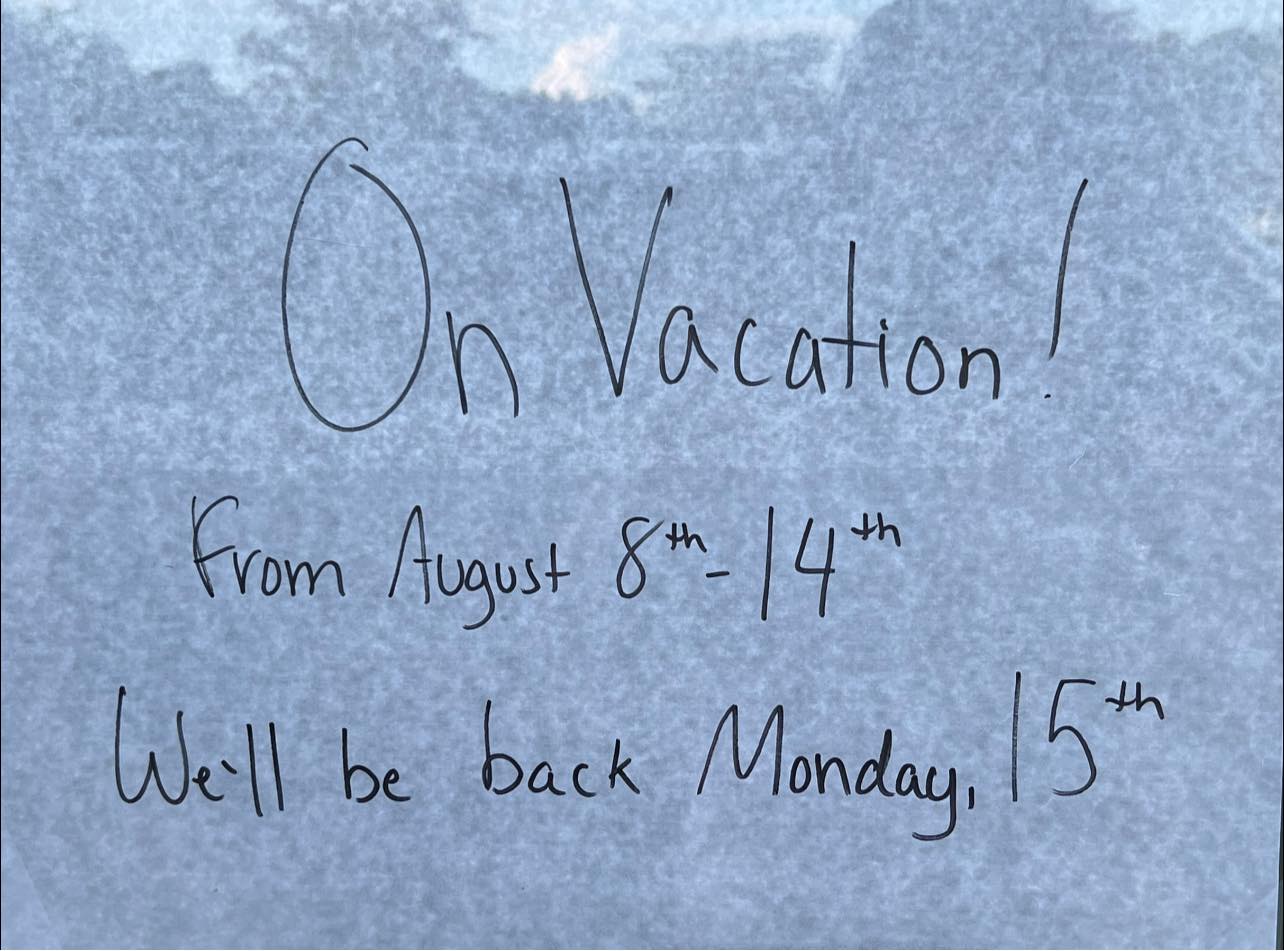 On Vacation!
From August 8th - 14th
We'll be back Monday, 15th